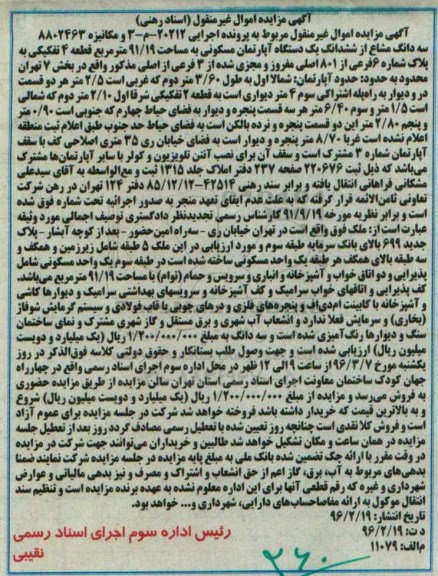 آگهی مزایده اموال غیرمنقول (اسناد رهنی)
آگهی مزایده اموال غیرمنقول مربوط به پرونده اجرایی ۲۰۲۱۲-م-۳ و مکانیزه ۸۸۰۲۴۶۳
سه دانگ مشاع از ششدانگ یک دستگاه آپارتمان مسکونی به مساحت ۹۱/۱۹ مترمربع قطعه ۴ تفکیکی به
پلاک شماره ۶فرعی از ۸۰۱ اصلی مفروز و مجزی شده از ۳ فرعی از اصلی مذکور واقع در بخش ۷ تهران
محدود به حدود: حدود آپارتمان: شمالا اول به طول ۳/۶۰ متر دوم که غربی است ۲/۵ متر هر دو قسمت
در و دیوار به راه‌پله اشتراکی سوم ۴ متر دیواری است به قطعه ۲ تفکیکی شرقا اول ۲/۱۰ متر دوم که شمالی
است ۱/۵ متر و سوم ۶/۴۰ متر هر سه قسمت پنجره و دیوار به فضای حیاط چهارم که جنوبی است ۰/۹۰ متر
و پنجم ۲/۸۰ متر این دو قسمت پنجره و نرده بالکن است به فضای حیاط حد جنوب طبق اعلام ثبت منطقه
اعلام نشده است غربا ۸/۷۰ متر پنجره و دیوار است به فضای خیابان ری ۳۵ متری اصلاحی کف با سقف
آپارتمان شماره ۳ مشترک است و سقف آن برای نصب آنتن تلویزیون و کولر با سایر آپارتمان‌ها مشترک
می‌باشد که ذیل ثبت ۲۲۰۶۷۶ صفحه ۲۳۷ دفتر املاک جلد ۱۳۱۵ ثبت و مع‌الواسطه به آقای سیدعلی
مشکانی فراهانی انتقال یافته و برابر سند رهنی ۴۲۵۱۴-۸۵/۱۲/۱۲ دفتر ۱۲۴ تهران در رهن شرکت
تعاونی ثامن‌الائمه قرار گرفته که به علت عدم ایفای تعهد منجر به صدور اجرائیه تحت شماره فوق شده
است و برابر نظریه مورخه ۹۱/۹/۱۹ کارشناس رسمی تجدیدنظر دادگستری توصیف اجمالی مورد وثیقه
عبارت است از: ملک فوق واقع است در تهران خیابان ری - سه‌راه امین‌حضور - بعد از کوچه آبشار - پلاک
جدید ۶۹۹ بالای بانک سرمایه طبقه سوم و مورد ارزیابی در این ملک ۵ طبقه شامل زیرزمین و همکف و
سه طبقه بالای همکف هر طبقه یک واحد مسکونی ساخته شده است در طبقه سوم یک واحد مسکونی شامل
پذیرایی و دو اتاق خواب و آشپزخانه و انباری و سرویس و حمام (توام) با مساحت ۹۱/۱۹ مترمربع می‌باشد.
کف پذیرایی و اتاقهای خواب سرامیک و کف آشپزخانه و سرویسهای بهداشتی سرامیک و دیوارها کاشی
و آشپزخانه با کابینت ام‌دی‌اف و پنجره‌های فلزی و درهای چوبی با قاب فولادی و سیستم گرمایش شوفاژ
(بخاری) و سرمایش فعلا ندارد و انشعاب آب شهری و برق مستقل و گاز شهری مشترک و نمای ساختمان
سنگ و دیوارها رنگ‌آمیزی شده است و سه دانگ به مبلغ ۱/۲۰۰/۰۰۰/۰۰۰ ریال (یک میلیارد و دویست
میلیون ریال) ارزیابی شده است و جهت وصول طلب بستانکار و حقوق دولتی کلاسه فوق‌الذکر در روز
یکشنبه مورخ ۹۶/۳/۷ از ساعت ۹ الی ۱۲ ظهر در محل اداره سوم اجرای اسناد رسمی واقع در چهارراه
جهان کودک ساختمان معاونت اجرای اسناد رسمی استان تهران سالن مزایده از طریق مزایده حضوری
به فروش می‌رسد و مزایده از مبلغ ۱/۲۰۰/۰۰۰/۰۰۰ ریال (یک میلیارد و دویست میلیون ریال) شروع
و به بالاترین قیمت که خریدار داشته باشد فروخته خواهد شد شرکت در جلسه مزایده برای عموم آزاد
است و فروش کلا نقدی است چنانچه روز تعیین شده با تعطیل رسمی مصادف گردد روز بعد از تعطیل جلسه
مزایده در همان ساعت و مکان تشکیل خواهد شد طالبین و خریداران می‌توانند جهت شرکت در مزایده
در وقت مقرر با ارائه چک تضمین شده بانک ملی به مبلغ پایه مزایده در جلسه مزایده شرکت نمایند ضمنا
بدهی‌های مربوط به آب، برق، گاز اعم از حق انشعاب و اشتراک و مصرف و نیز بدهی مالیاتی و عوارض
شهرداری و غیره که رقم قطعی آنها برای این اداره معلوم نشده به عهده برنده مزایده است و تنظیم سند
انتقال موکول به ارائه مفاصاحساب‌های دارایی، شهرداری و... خواهد بود.
تاریخ انتشار: ۹۶/۲/۱۹
د ت: ۹۶/۲/۱۹
م‌الف: ۱۱۰۷۹
رئیس اداره سوم اجرای اسناد رسمی
نقیبی
۳۶۰